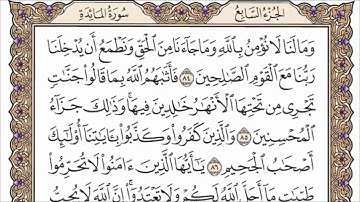 الجزء السابع سورة المائدة
وَمَا لَنَا لَا نُؤْمِنُ بِٱللَّهِ وَمَا جَآءَنَا مِنَ ٱلْحَقِّ وَنَطْمَعُ أَن يُدْخِلَنَا
رَبُّنَا مَعَ ٱلْقَوْمِ ٱلصَّٰلِحِينَ ٨٤ فَأَثَٰبَهُمُ ٱللَّهُ بِمَا قَالُوا۟ جَنَّٰتٍ
تَجْرِى مِن تَحْتِهَا ٱلْأَنْهَٰرُ خَٰلِدِينَ فِيهَا ۚ وَذَٰلِكَ جَزَآءُ
ٱلْمُحْسِنِينَ ٨٥ وَٱلَّذِينَ كَفَرُوا۟ وَكَذَّبُوا۟ بِـَٔايَٰتِنَآ أُو۟لَٰٓئِكَ
أَصْحَٰبُ ٱلْجَحِيمِ ٨٦ يَٰٓأَيُّهَا ٱلَّذِينَ ءَامَنُوا۟ لَا تُحَرِّمُوا۟
طَيِّبَٰتِ مَآ أَحَلَّ ٱللَّهُ لَكُمْ وَلَا تَعْتَدُوٓا۟ ۚ إِنَّ ٱللَّهَ لَا يُحِبُّ